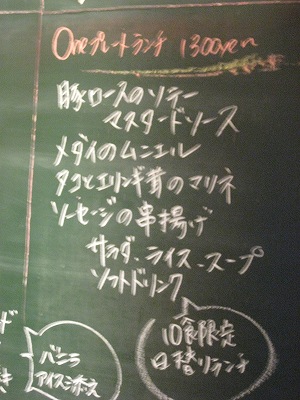 Oneプレートランチ 1300yen
豚ロースのソテー
マスタードソース
メダイのムニエル
タコとエリンギ茸のマリネ
ソーセージの串揚げ
サラダ、ライス、スープ
ソフトドリンク
10食限定
日替りランチ
バニラ
アイス添え
ド
き